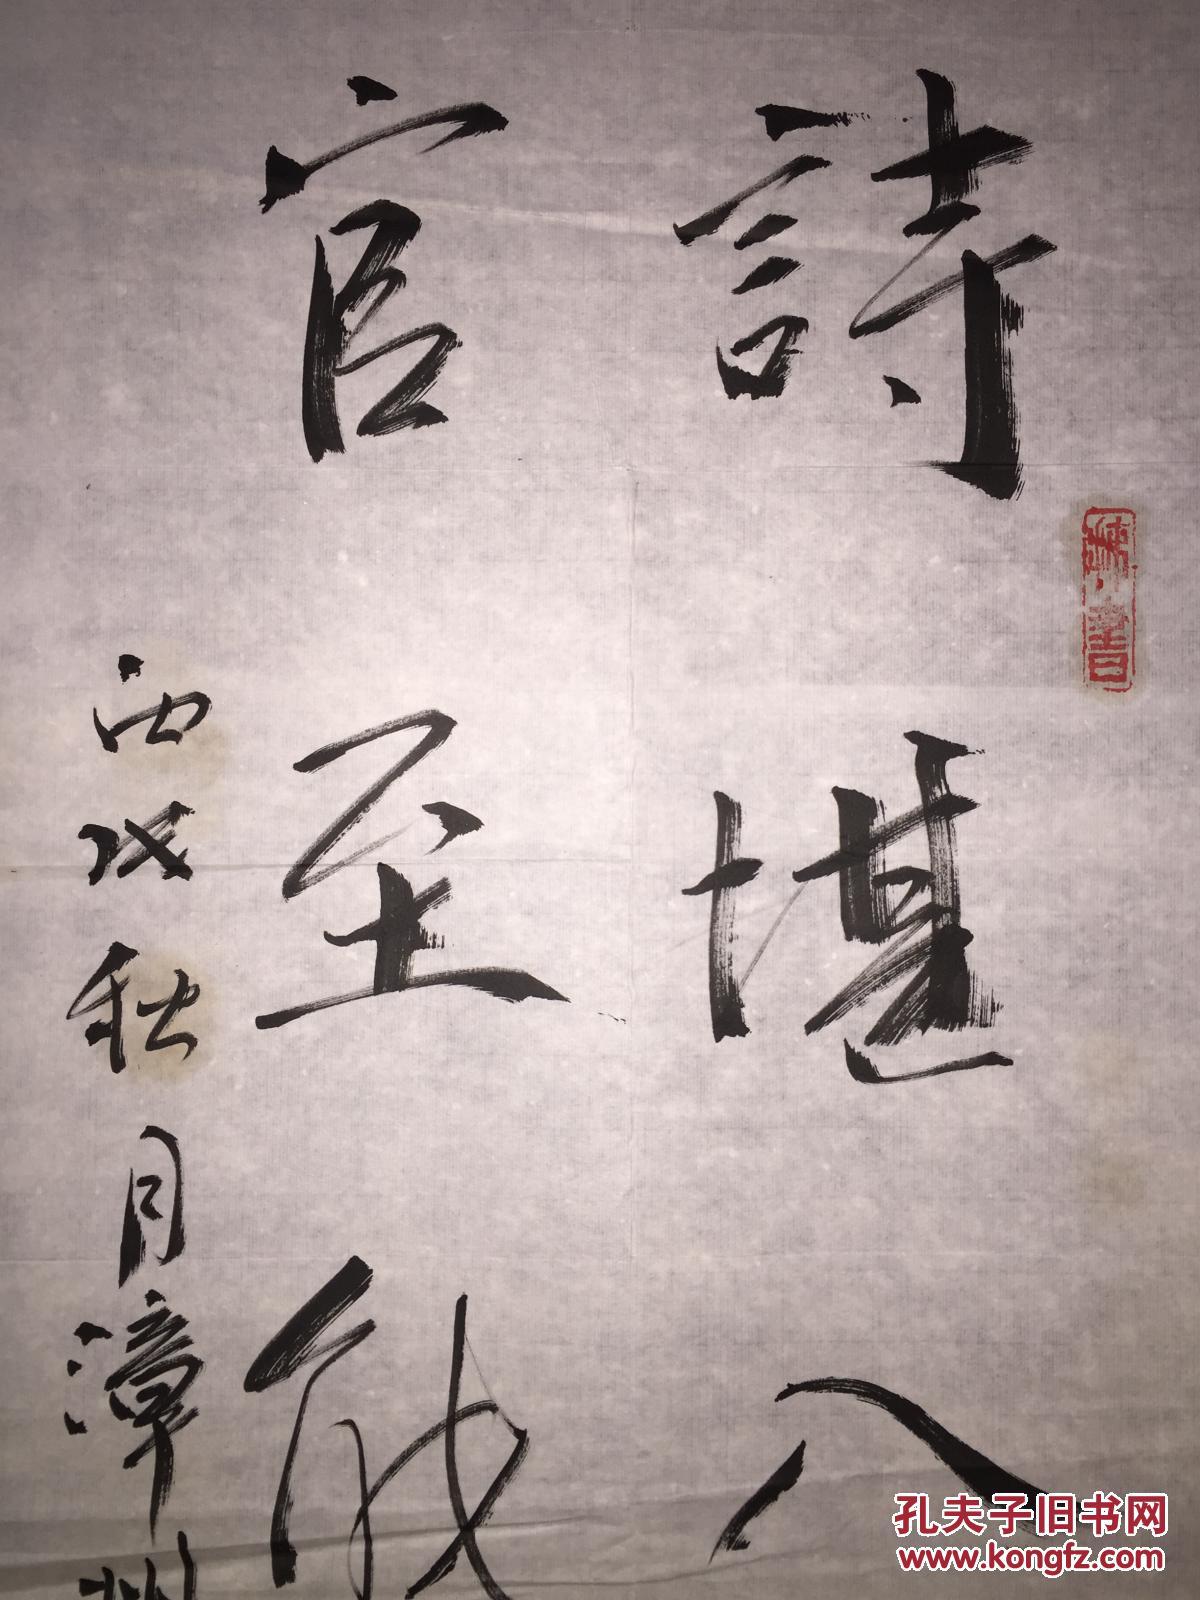 詩堪入
官至能
丙戌秋月漳州
孔夫子旧书网
www.kongfz.com